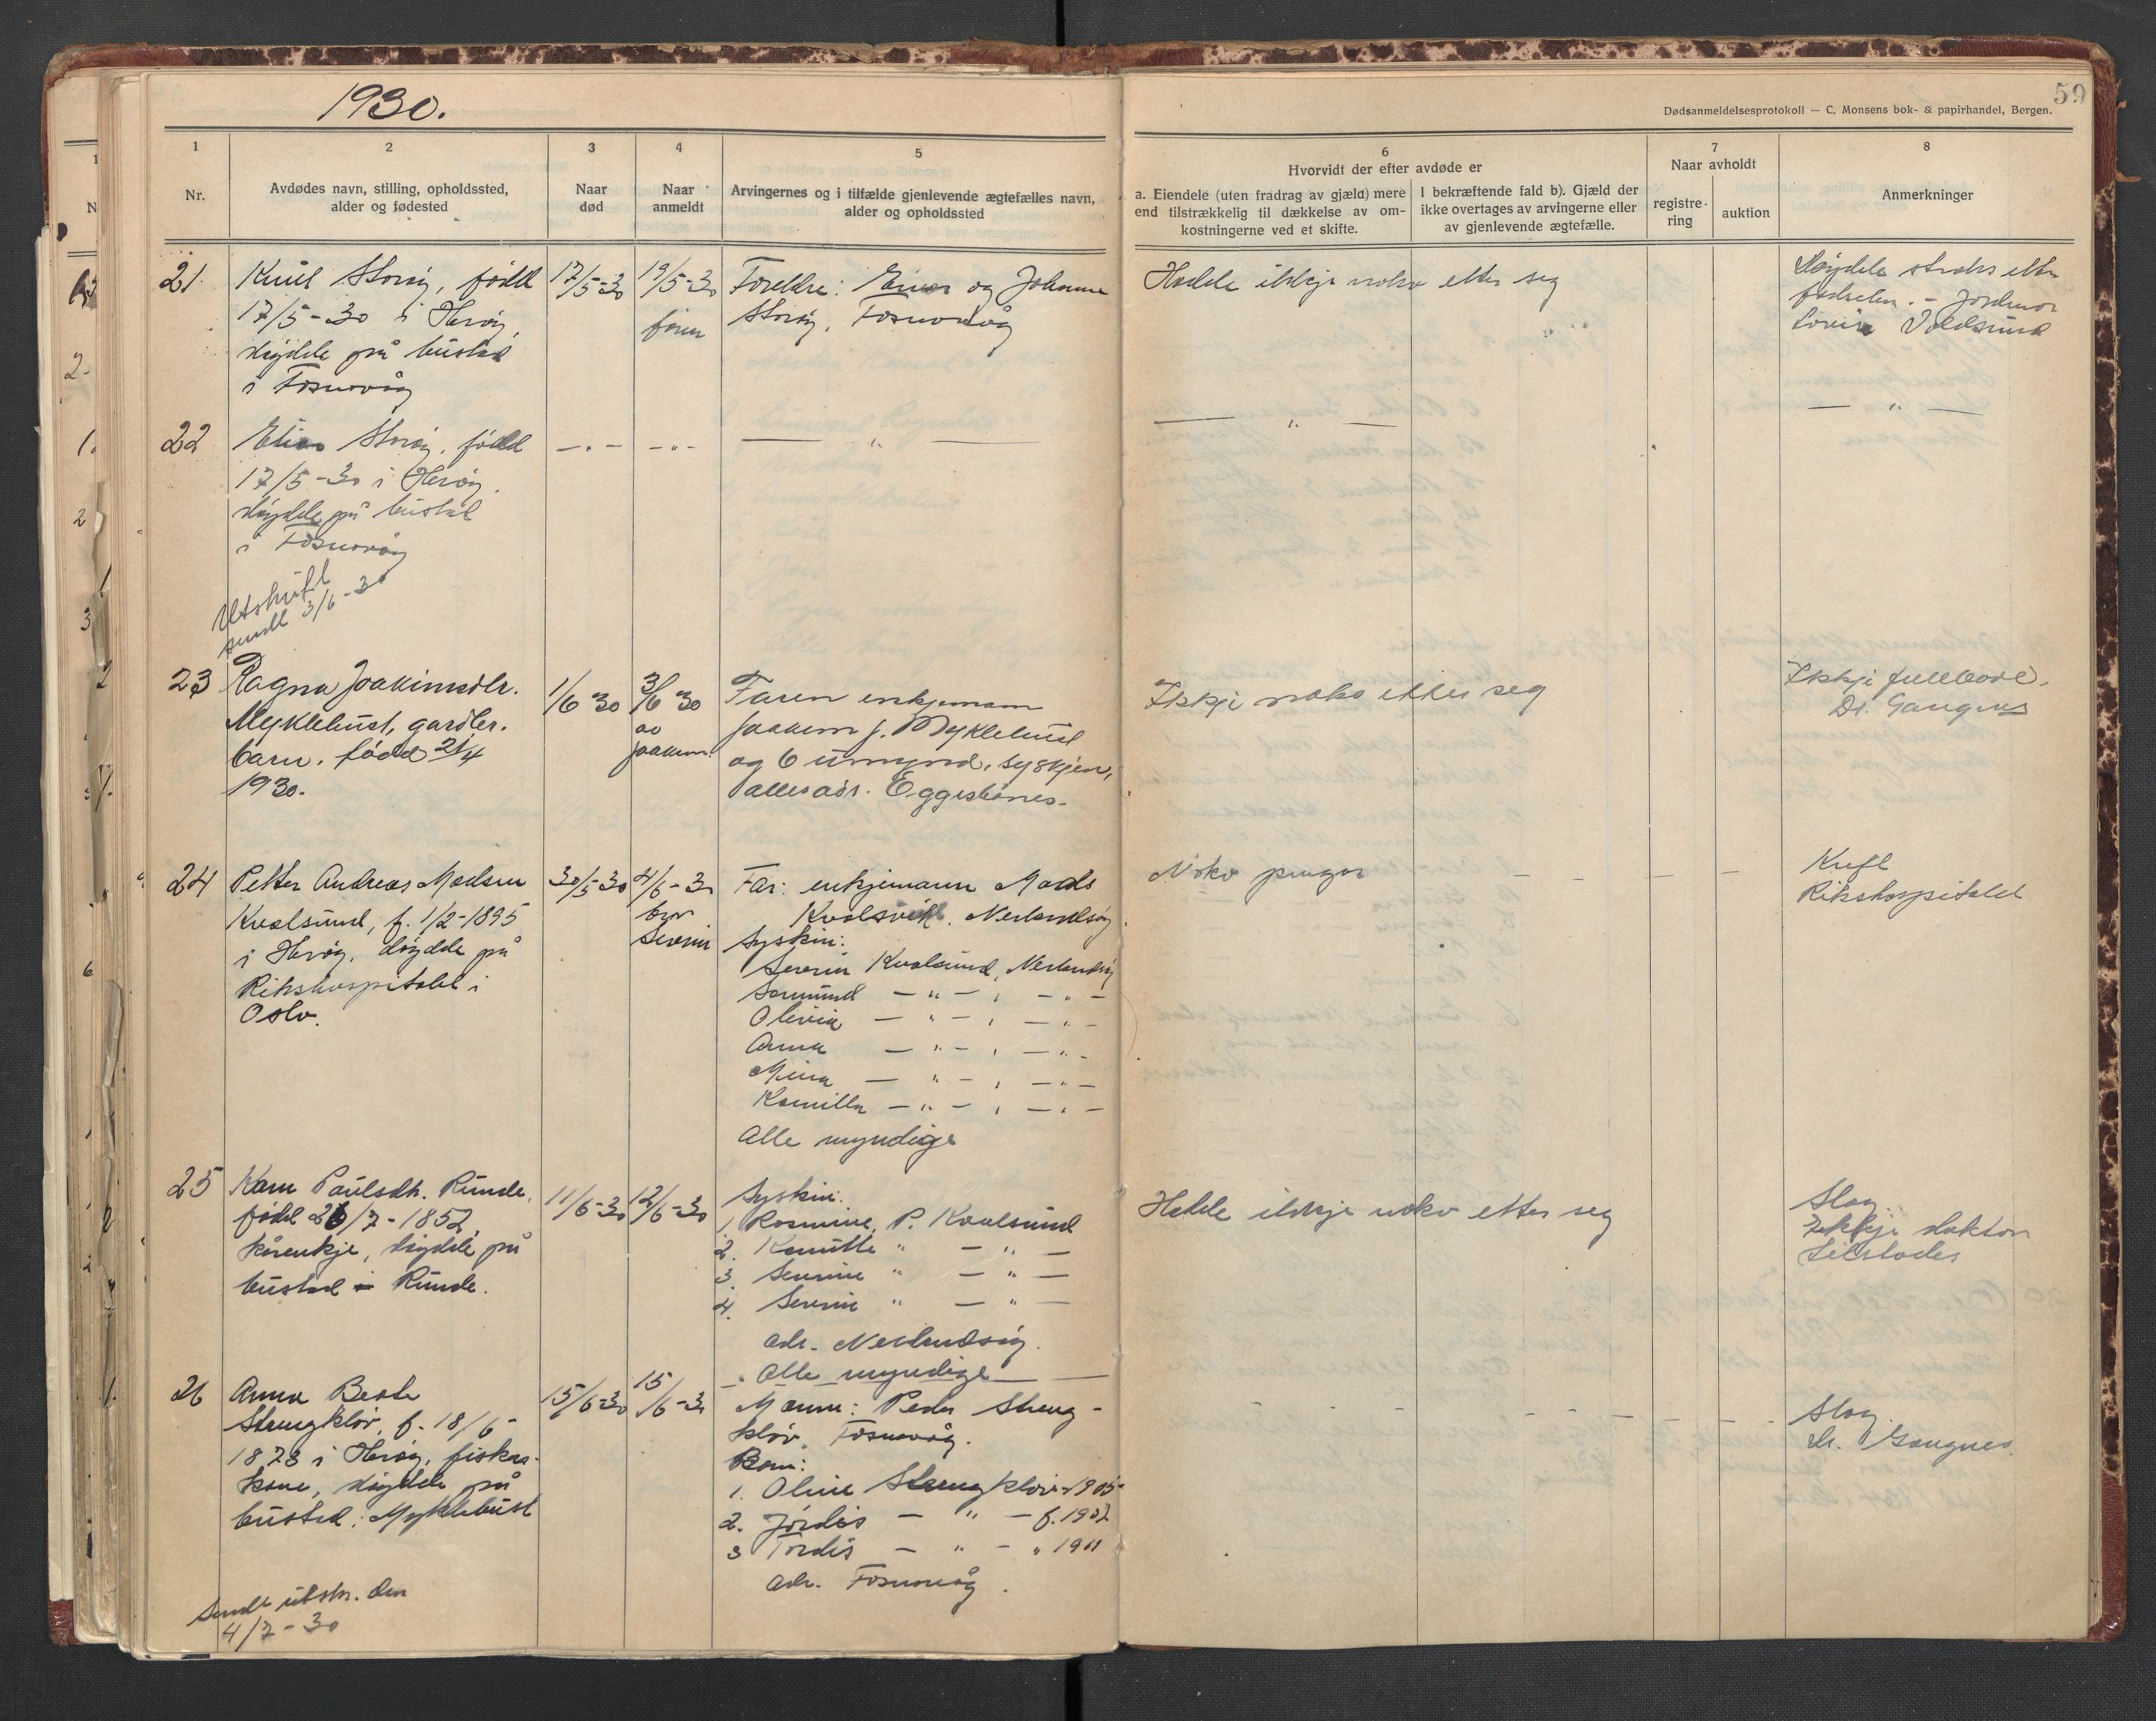 1930.
59
Dødsanmeldelsesprotokoll — C. Monsens bok- & papirhandel, Bergen.
1
Nr.
2
Avdødes navn, stilling, opholdssted,
alder og fødested
3
Naar
død
4
Naar
anmeldt
5
Arvingernes og i tilfælde gjenlevende ægtefælles navn,
alder og opholdssted
6
Hvorvidt der efter avdøde er
a. Eiendele (uten fradrag av gjæld) mere
end tilstrækkelig til dækkelse av om-
kostningerne ved et skifte.
I bekræftende fald b). Gjæld der
ikke overtages av arvingerne eller
av gjenlevende ægtefælle.
7
Naar avholdt
registre-
ring
auktion
8
Anmerkninger
21.
Knut Storøy, født
17/5-30 i Herøy,
døydde på bustad
i Fosnavåg
17/5-30
19/5-30
faren
Foreldre: Einar og Johanne
Storøy, Fosnavåg
Hadde ikkje noko etter seg
Døydde straks etter
fødselen. - Jordmor
Lovise Voldsund
22
Elias Storøy, født
17/5-30 i Herøy.
døydde på bustad
i Fosnavåg
— „ —
— „ —
— „ —
— „ —
— „ —
Utskrift
sendt 3/6-30
23
Ragna Joakimsdtr.
Myklebust, gardbr.
barn. født 21/4
1930.
1/6 30
3/6 30
av
Joakim
Faren enkjemann
Joakim J. Myklebust
og 6 umynd. syskjen,
alles adr. Eggesbønes.
Ikkje noko etter seg
Ikkje fullbore.
Dr. Gangnes
24
Petter Andreas Madsen
Kvalsund, f. 1/2-1895
i Herøy, døydde på
Rikshospitalet i
Oslo.
30/5-30
4/6-30
bror
Severin
Far: enkjemann Mads
Kvalsvik, Nerlandsøy
Syskin:
Severin Kvalsund, Nerlandsøy
Samund — „ — , — „ —
Olivia — „ — , — „ —
Anna — „ — , — „ —
Mina — „ — , — „ —
Kamilla — „ — , — „ —
Alle myndige
Noko pengar — — — — —
Kreft
Rikshospitalet
25
Karn Paulsdtr. Runde,
født 26/7-1852
kårenkje, døydde på
bustad i Runde.
11/6-30
12/6-30
Syskin:
1. Rasmine P. Kvalsund
2. Kamille „ — „ —
3. Severine „ — „ —
4. Severin „ — „ —
adr. Nerlandsøy.
Alle myndige
Hadde ikkje noko etter seg
Slag.
Ikkje doktor
tilstades
26
Anna Beate
Strengkløv, f. 18/6-
1878 i Herøy, fiskar-
kone, døydde på
bustad: Myklebust
15/6-30
15/6-30
Mann: Peder Streng-
kløv, Fosnavåg.
Born:
1. Oline Strengkløv 1905
2. Jordis — „ — f. 1907
3 Tordis — „ — „ 1911
adr. Fosnavåg.
— — — — — — —
Slag.
Dr. Gangnes.
Sendt utskr. den
4/7-30